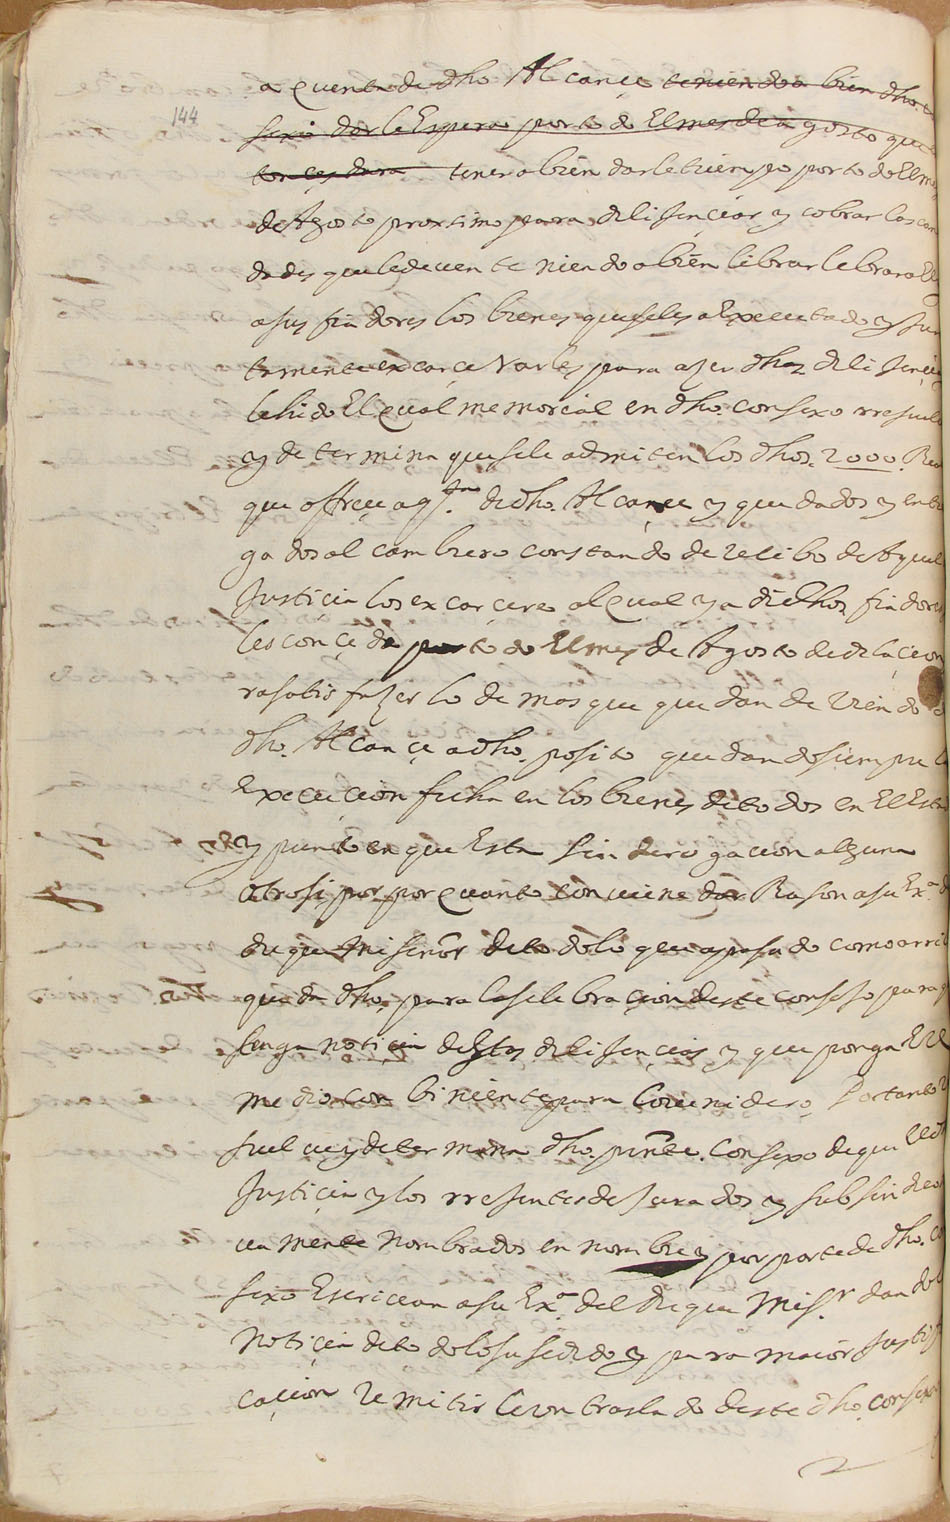 144
a quenta de dho Alcançe teniendo a bien dho
sexo dar le Espera por todo El mes de agosto que
tonces dara tener a bien darle tiempo por todo El mes
de Agosto proximo para dilijenciar y cobrar las can
dades que le deven teniendo a bien librarle
a sus fiadores los bienes que se les a Executado y Jun
tamente excarçe larles para aser dhaz dilijencia
lehido El qual memorial en dho consexo rresuel
y determina que se le admiten los dhos 2000 Rea
que offreçe a qta de dho Alcançe y que dados y entre
gados al cambrero constando de recibo de Aquel
Justiçia los excarçere al qual y a dichos fiadores
les conçeda por todo El mes de Agosto de dilaçion
ra satisfazer lo demas que quedan deviendo
dho Alcançe a dho posito quedando siempre la
Execucion fecha en los bienes de todos en El Esta
y punto en que Esta sin derogacion alguna
otrosi por por quanto conviene dar Rason a su Exa
duque Mi señor de todo lo que a pasado como arri
queda dho para la selebraçion deste consejo para q
tenga notiçia destas dilijençias y que ponga El
medio con biniente para lo venidero Portanto
suelve y determina dho pnte consexo de que El
Justiçia y los rrejentes de Jurados y subsindico
vamente nombrados en nombre y por parte de dho co
sexo Escrivan a su Exa del duque Mi sr dandole
notiçia de todo lo susedido y para maior Justifi
caçion remitirle un traslado deste dho consexo